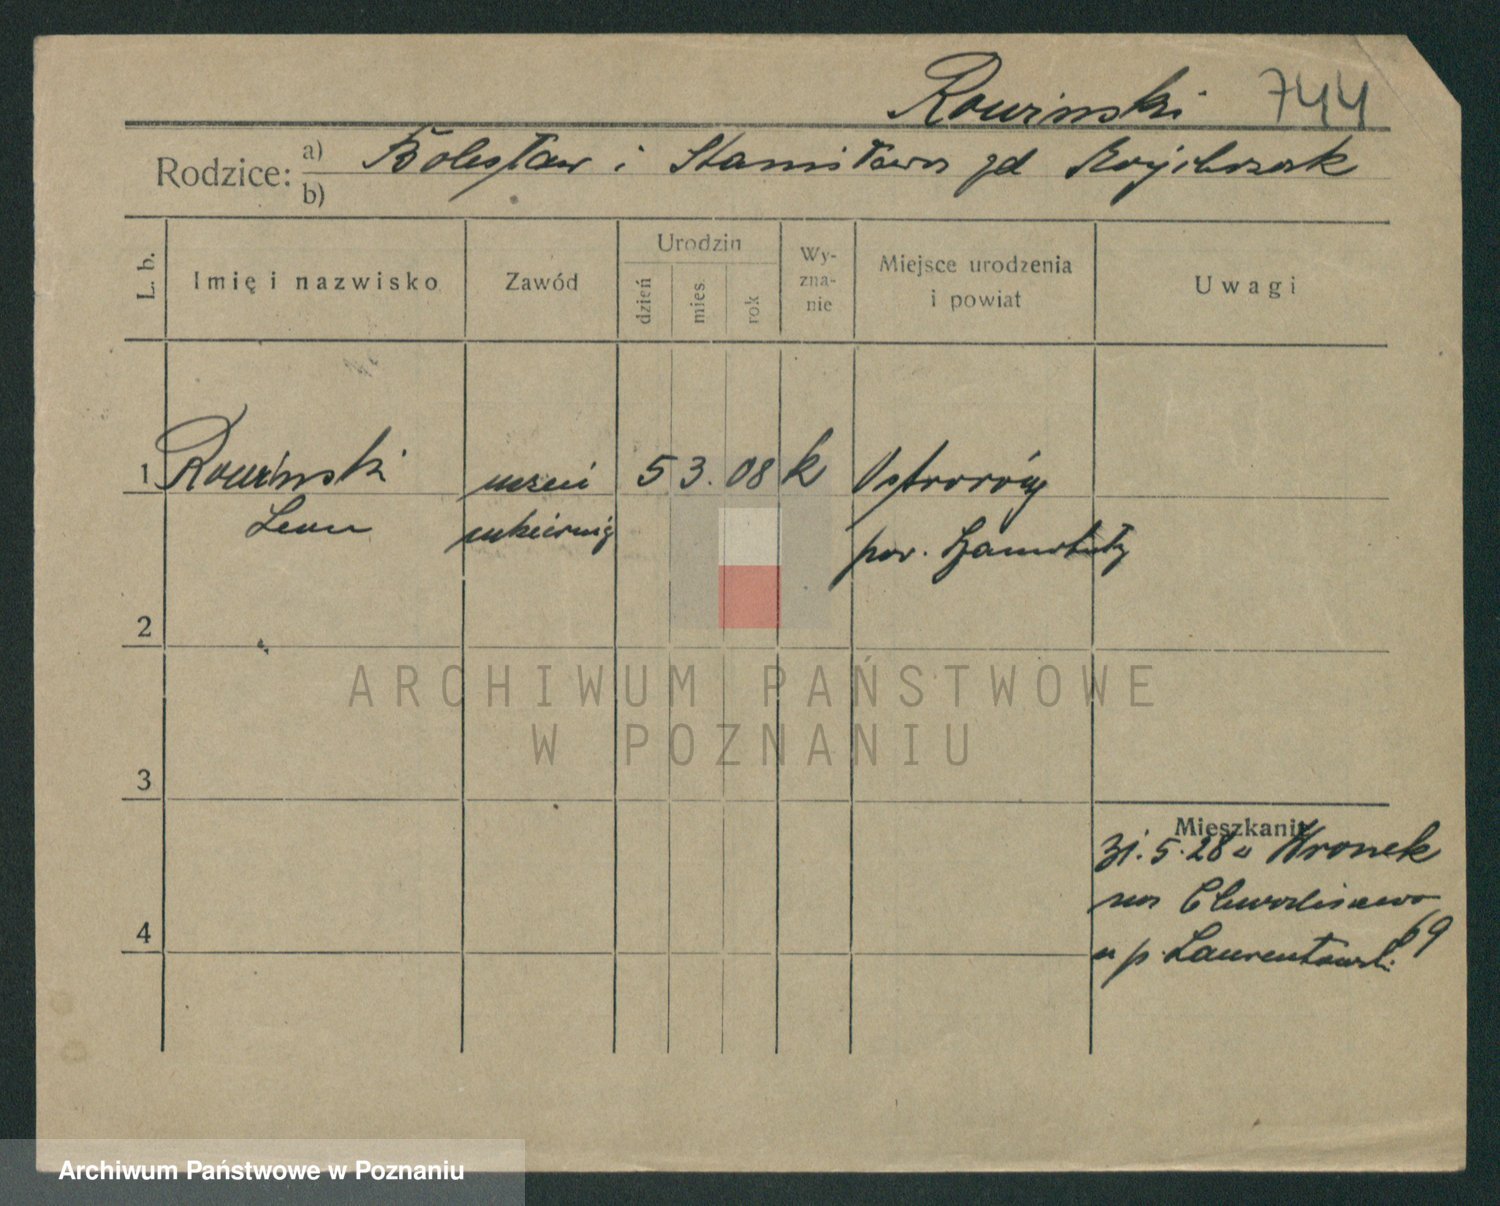 Rowinski 744
Rodzice: a) Bolesław i Stanisława zd
b)
L. b.
Imię i nazwisko
Zawód
Urodzin
dzień
mies.
rok
Wy-
zna-
nie
Miejsce urodzenia
i powiat
Uwagi
1 Rowinski uczeń 5 3. 08 k Ostroróg
Leon cukierniç pow. Szamotuły
2
3
4
Mieszkanie
31.5.28 u Wronek
na Chwaliszewo 69
u p. Laurentowski
ARCHIWUM PAŃSTWOWE
W POZNANIU
Archiwum Państwowe w Poznaniu